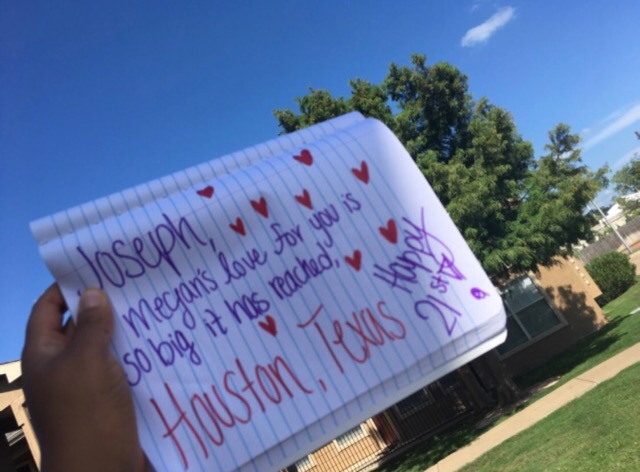 Joseph,
Megan's love for you is
so big it has reached,
Houston, Texas
Happy
21st!